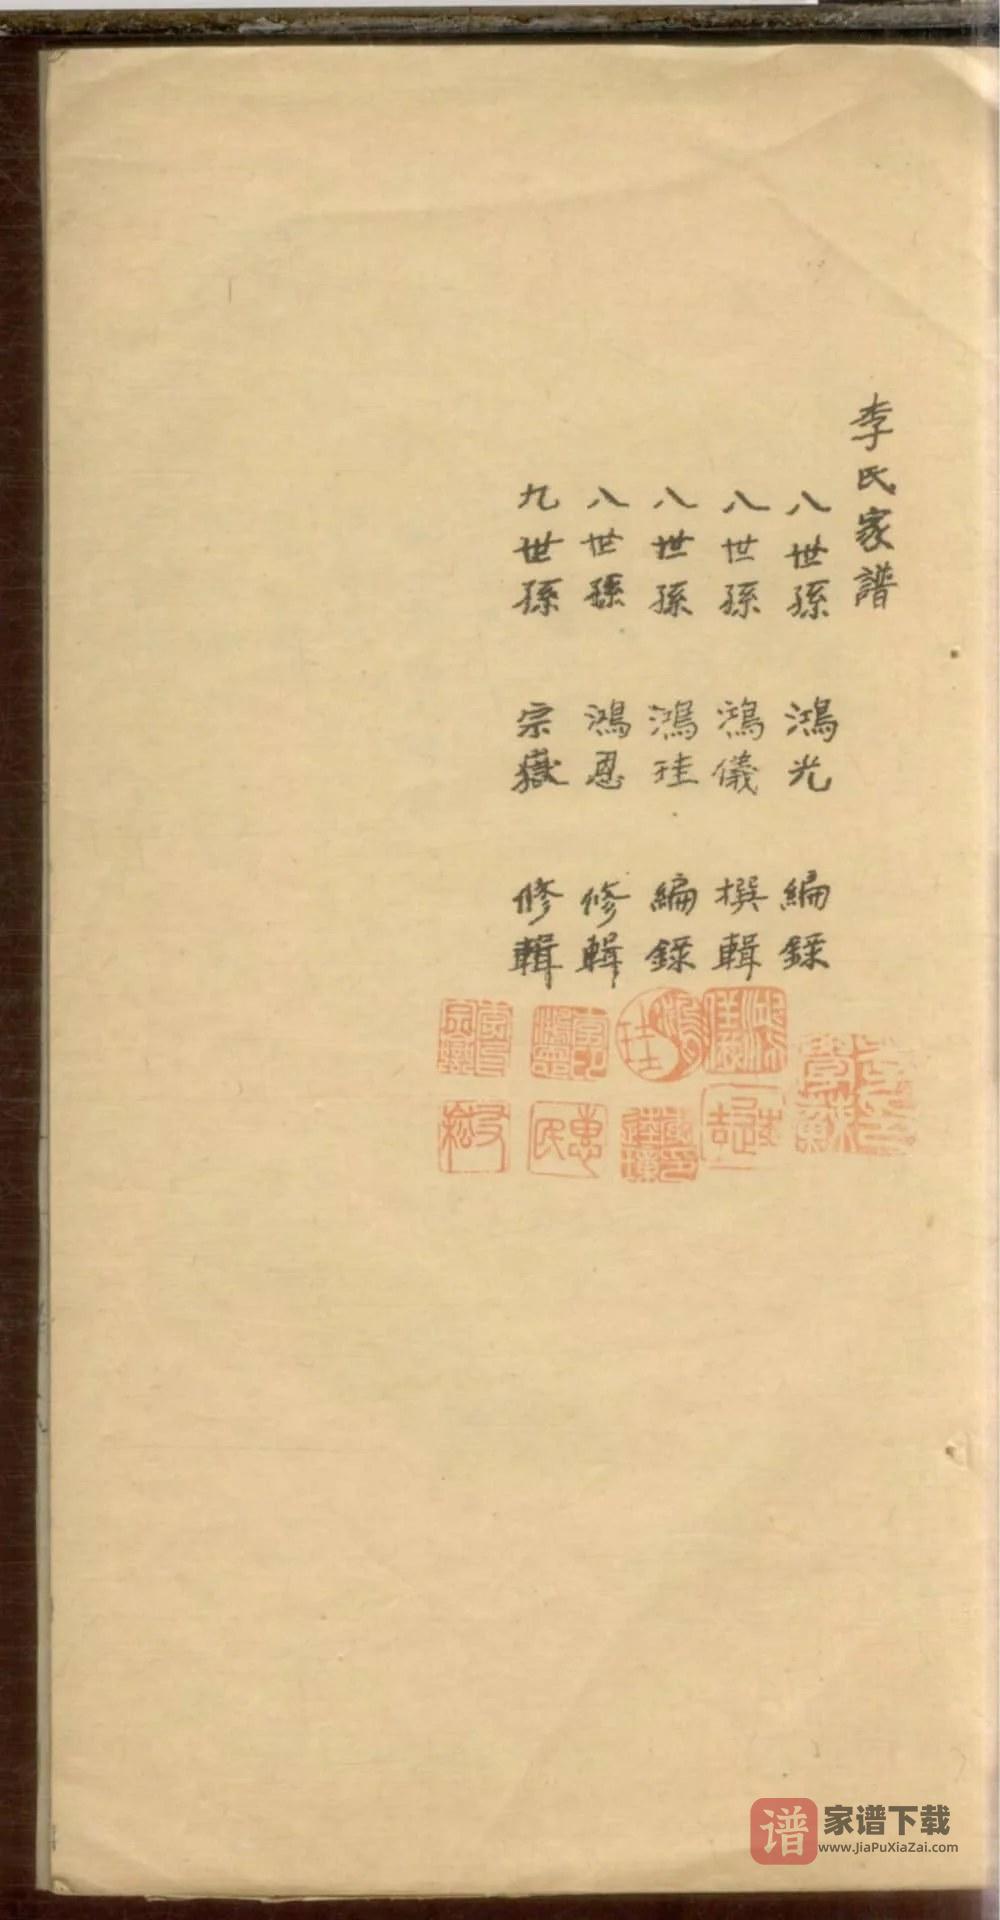 李氏家譜
八世孫 鴻光 編錄
八世孫 鴻儀 撰輯
八世孫 鴻珪 編錄
八世孫 鴻恩 修輯
九世孫 宗嶽 修輯
鴻儀
鴻珪
惠民
谱 家谱下载
www.JiaPuXiaZai.com